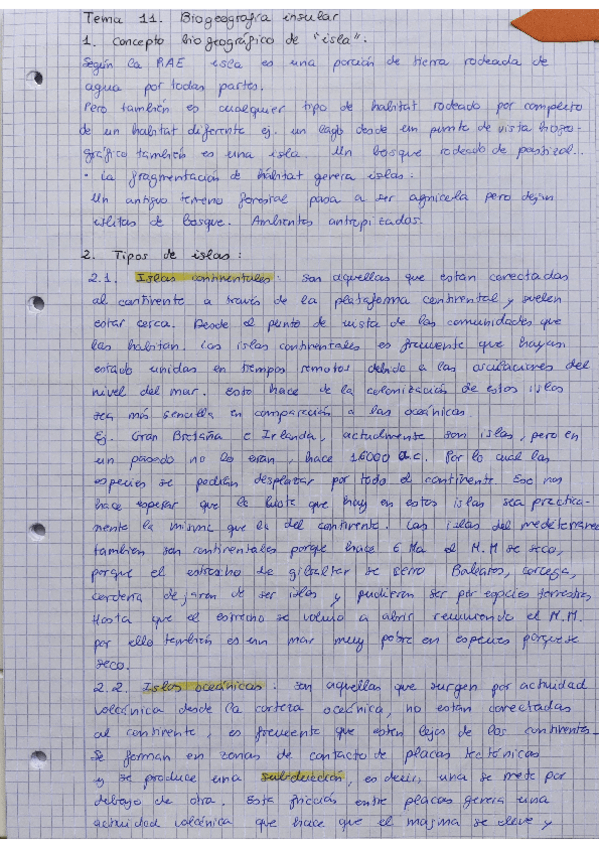 Tema 11. Biogeografía insular
1. Concepto biogeográfico de "isla".
Según la RAE isla es una porción de tierra rodeada de
agua por todas partes.
Pero también es cualquier tipo de hábitat rodeado por completo
de un hábitat diferente ej. un lago desde un punto de vista biogeo-
gráfico también es una isla. Un bosque rodeado de pastizal...
· La fragmentación de hábitat genera islas.
Un antiguo terreno forestal pasa a ser agrícola pero dejan
islitas de bosque. Ambientes antropizados.
2. Tipos de islas:
2.1. Islas continentales: son aquellas que estan conectadas
al continente a través de la plataforma continental y suelen
estar cerca. Desde el punto de vista de las comunidades que
las habitan. Las islas continentales es frecuente que hayan
estado unidas en tiempos remotos debido a las oscilaciones del
nivel del mar. Esto hace de la colonización de estas islas
sea más sencilla en comparación a las oceánicas.
Ej. Gran Bretaña e Irlanda, actualmente son islas, pero en
un pasado no lo eran, hace 16000 a.c. Por lo cual las
especies se podían desplazar por todo el continente. Eso nos
hace esperar que la biota que hay en estas islas sea práctica-
mente la misma que la del continente. Las islas del mediterraneo
tambien son continentales porque hace 6 Ma el M.M se seco,
porque el estrecho de gibraltar se cerro Baleares, corcega,
cerdeña dejaron de ser islas y pudieron ser por especies terrestres
Hasta que el estrecho se volvio a abrir el M.M.
por ello también es un mar muy pobre en especies porque se
seco.
2.2. Islas oceánicas: son aquellas que surgen por actividad
volcánica desde la corteza oceánica, no estan conectadas
al continente, es frecuente que esten lejos de los continentes.
Se forman en zonas de contacto de placas tectónicas
y se produce una subducción, es decir, una se mete por
debajo de otra. Esta fricción entre placas genera una
actividad volcánica que hace que el magma se eleve y